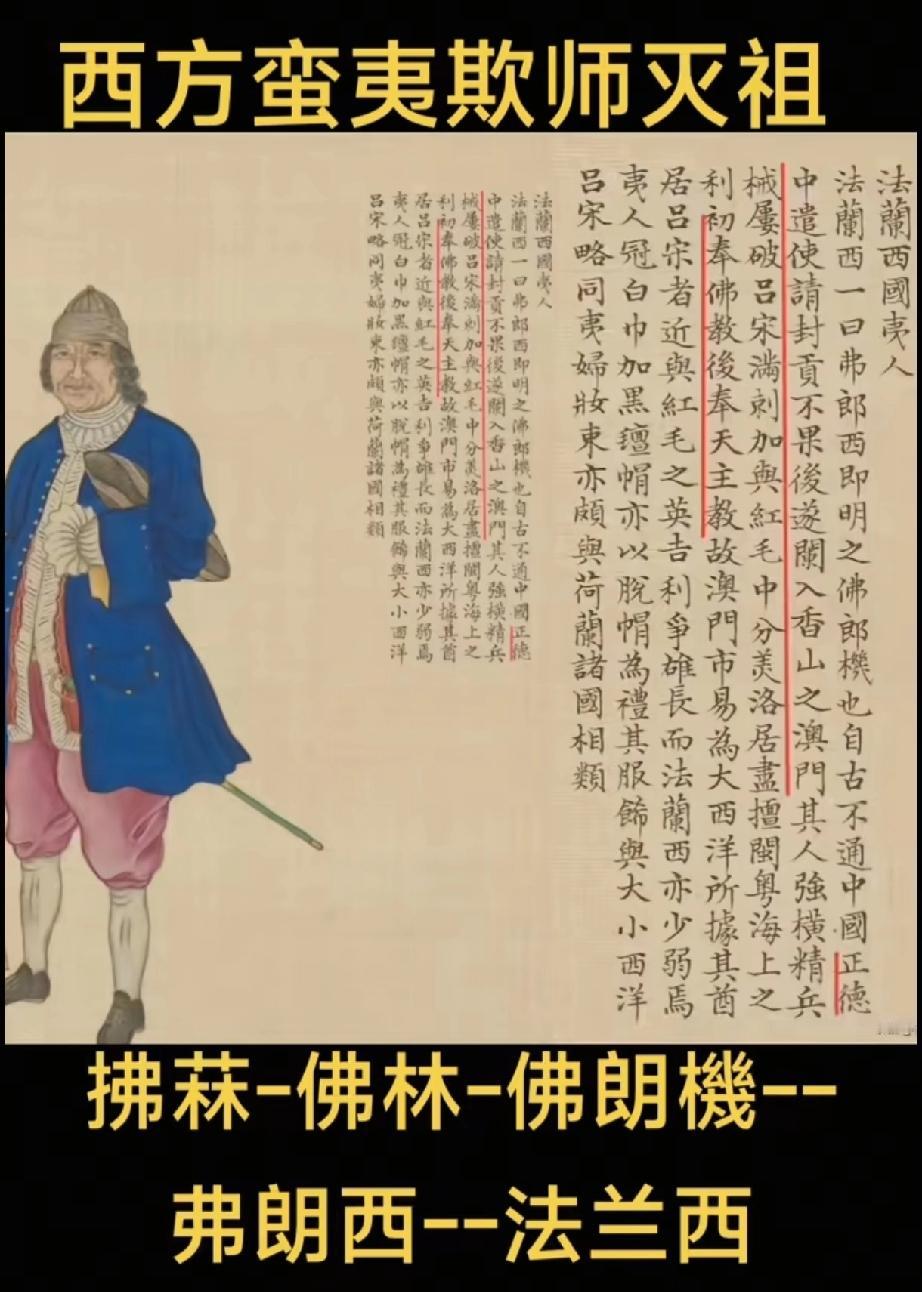 西方蛮夷欺师灭祖
法蘭西國夷人
法蘭西一曰弗郎西即明之佛郎機也自古不通中國正德
中遣使請封貢不果後遂闌入香山之澳門其人強橫精兵
械屢破呂宋滿剌加與紅毛中分美洛居盡擅閩粵海上之
利初奉佛教後奉天主教故澳門市易為大西洋所據其酋
居呂宋者近與紅毛之英吉利爭雄長而法蘭西亦少弱焉
夷人冠白巾加黑氊帽亦以脫帽為禮其服飾與大小西洋
呂宋略同夷婦妝束亦頗與荷蘭諸國相類
法蘭西國夷人
法蘭西一曰弗郎西即明之佛郎機也自古不通中國正德
中遣使請封貢不果後遂闌入香山之澳門其人強橫精兵
械屢破呂宋滿剌加與紅毛中分美洛居盡擅閩粵海上之
利初奉佛教後奉天主教故澳門市易為大西洋所據其酋
居呂宋者近與紅毛之英吉利爭雄長而法蘭西亦少弱焉
夷人冠白巾加黑氊帽亦以脫帽為禮其服飾與大小西洋
呂宋略同夷婦妝束亦頗與荷蘭諸國相類
拂菻-佛林-佛朗機--
弗朗西--法兰西